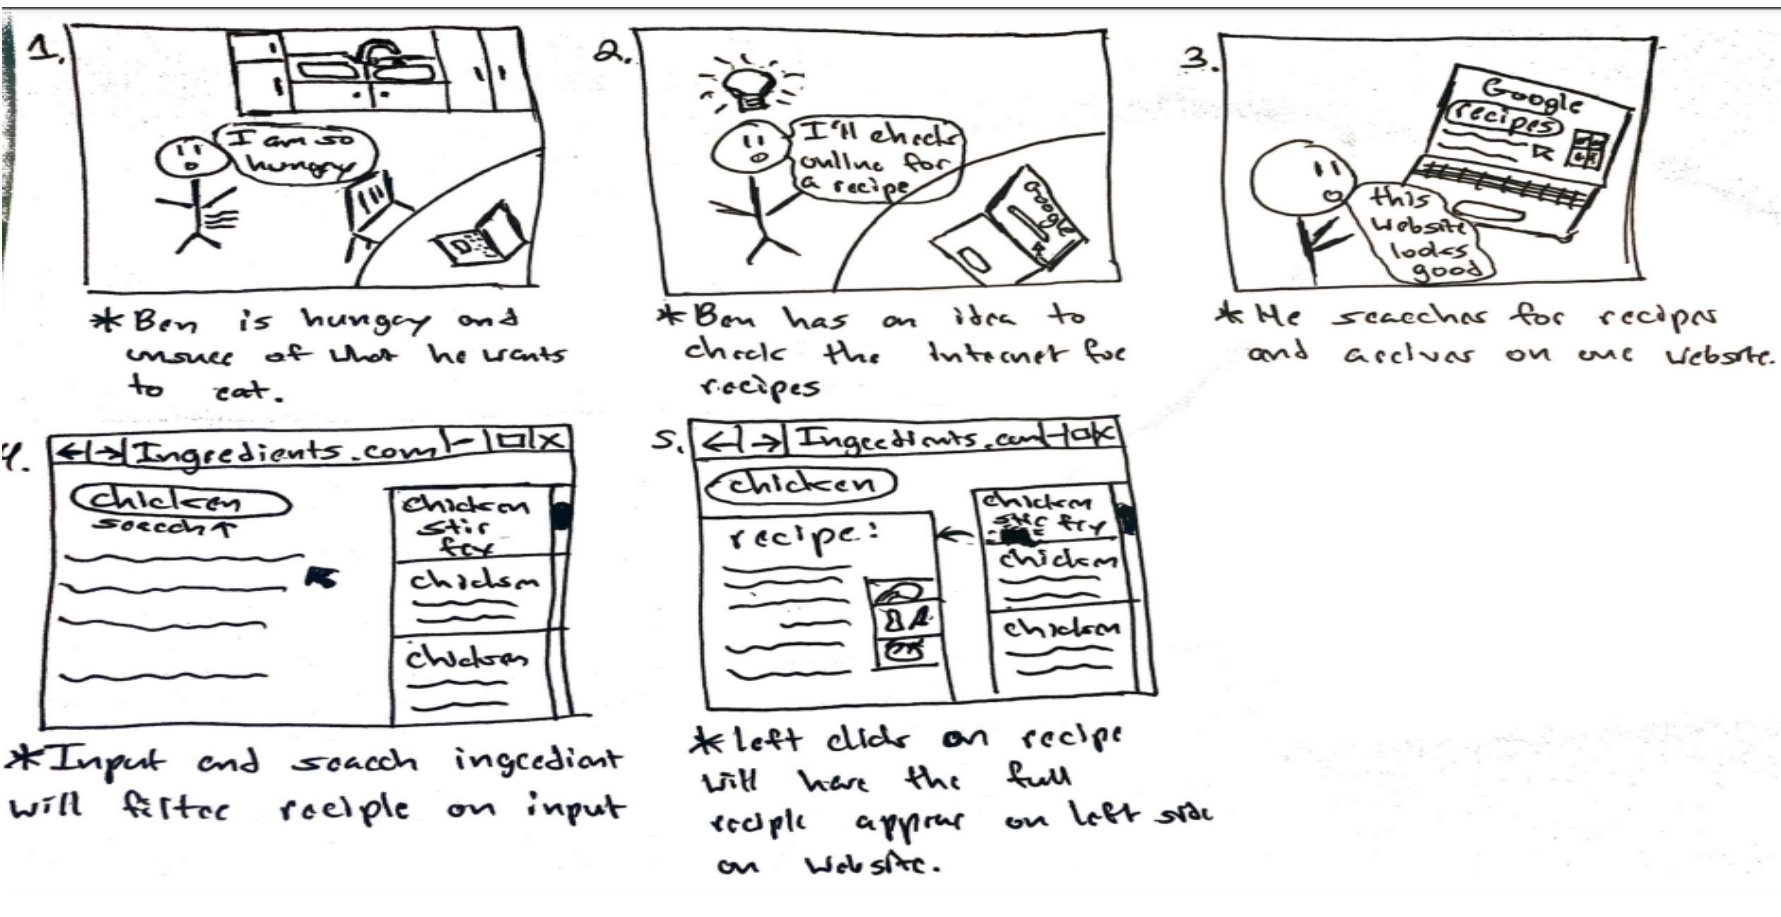 1.
I am so
hungry
* Ben is hungry and
unsure of what he wants
to eat.
2.
I'll check
online for
a recipe
Google
* Ben has an idea to
check the internet for
recipes
3.
Google
recipes
this
website
looks
good
* He searches for recipes
and arrives on our website.
4.
Ingredients.com
chicken
search↑
chicken
stir
fry
chicken
chicken
* Input and search ingredient
will filter reciple on input
5.
Ingredients.com
chicken
recipe:
chicken
stir fry
chicken
chicken
* left click on recipe
will have the full
reciple appear on left side
on website.